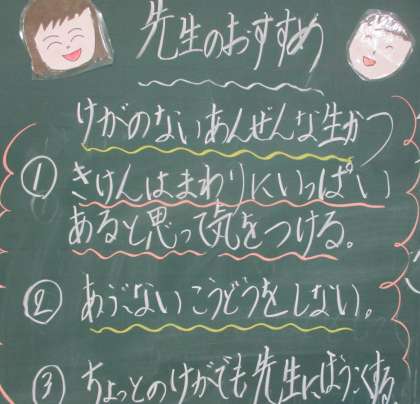 先生のおすすめ
けがのないあんぜんな生かつ
① きけんはまわりにいっぱい
あると思って気をつける。
② あぶないこうどうをしない。
③ ちょっとのけがでも先生にほうこくする。